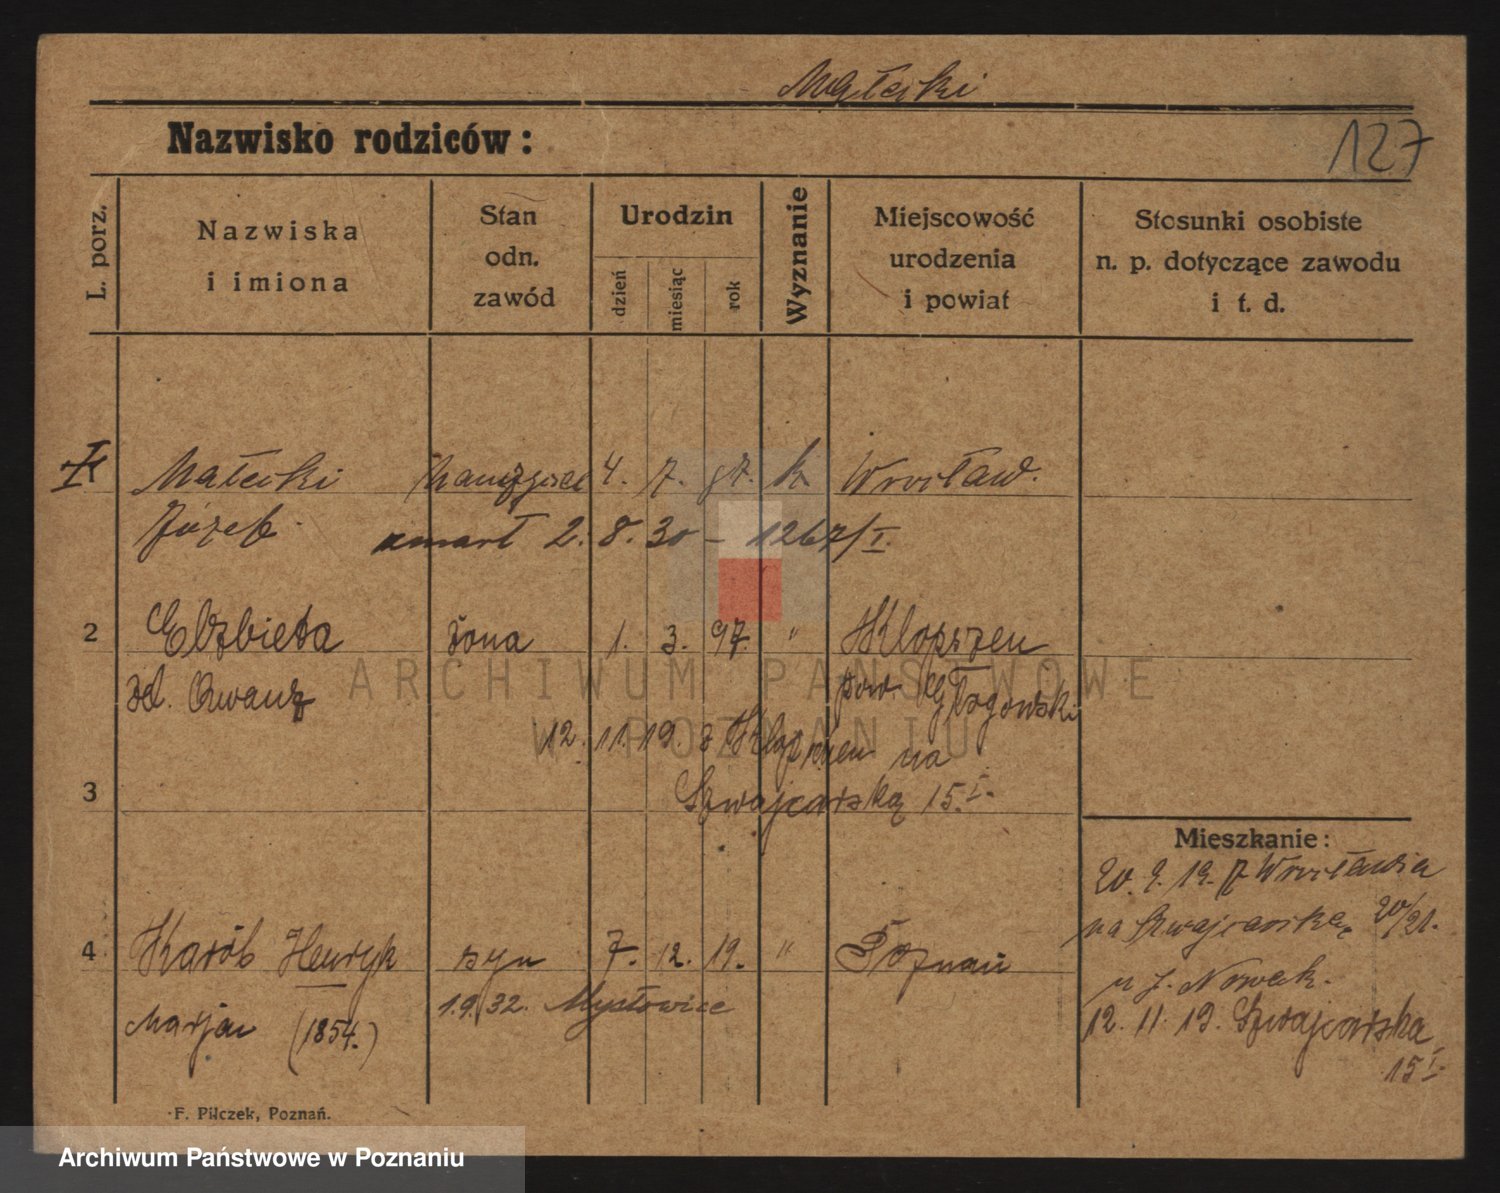 Małecki
Nazwisko rodziców:
127
L. porz.
Nazwiska
i imiona
Stan
odn.
zawód
Urodzin
dzień
miesiąc
rok
Wyznanie
Miejscowość
urodzenia
i powiat
Stosunki osobiste
n. p. dotyczące zawodu
i t. d.
Małecki 4. 7. 87. k Wrocław.
Józef. umarł 2. 8. 30 – 1267/I.
2 Elżbieta żona 1. 3. 97. " Klopszen
zd. pow Głogowski
12. 11. 19. z Klopszen na
3 Szwajcarską 15 I.
Mieszkanie:
20. 9. 19. z Wrocławia
na Szwajcarską 20/21.
u J. Nowak.
12. 11. 19. Szwajcarska
15 I.
4 Karól Henryk syn 7. 12. 19. " Poznań
1.9.32. Mysłowice
Marjan (1854.)
F. Pilczek, Poznań.
ARCHIWUM PAŃSTWOWE
W POZNANIU
Archiwum Państwowe w Poznaniu